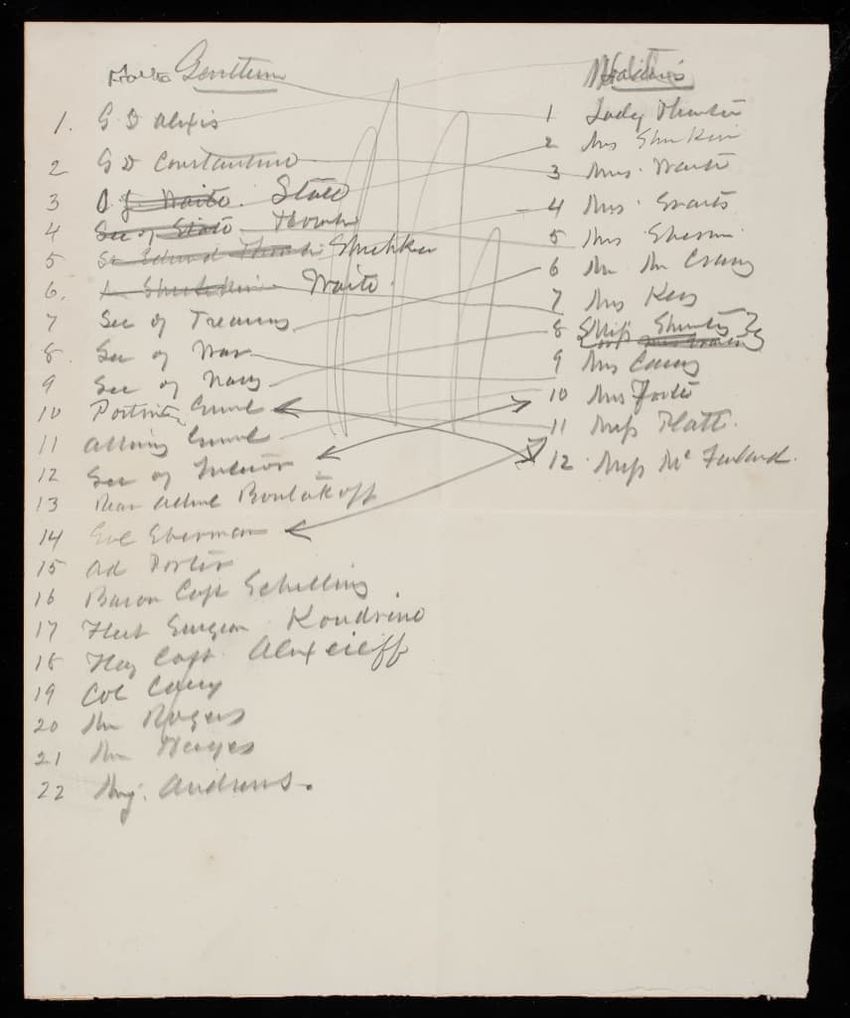 Gentlemen
1. G D Alexis
2 G D Constantine
3 C. J. Waite. State
4 Sec of State Thornton
5 Sr Edward Thornton Shishkin
6. Shishkin Waite.
7 Sec of Treasury
8. Sec of War
9 Sec of Navy
10 Postmtr Genrl
11 Attorney Genrl
12 Sec of Interior
13 Rear Adml Boutakoff
14 Gel Sherman
15 Ad Porter
16 Baron Capt Schilling
17 Fleet Surgeon Koudrino
18 Flag Capt. Alexeieff
19 Col Casey
20 Mr Rogers
21 Mr
22 Andrews.
Ladies
1 Lady Thornton
2 Mrs Shishkin
3 Mrs. Waite
4 Mrs. Evarts
5 Mrs Sherman
6 Mrs Mc Crary
7 Mrs Key
8 Miss
9 Mrs Casey
10 Mrs Foote
11 Miss Platt.
12 Miss Mc Farland.